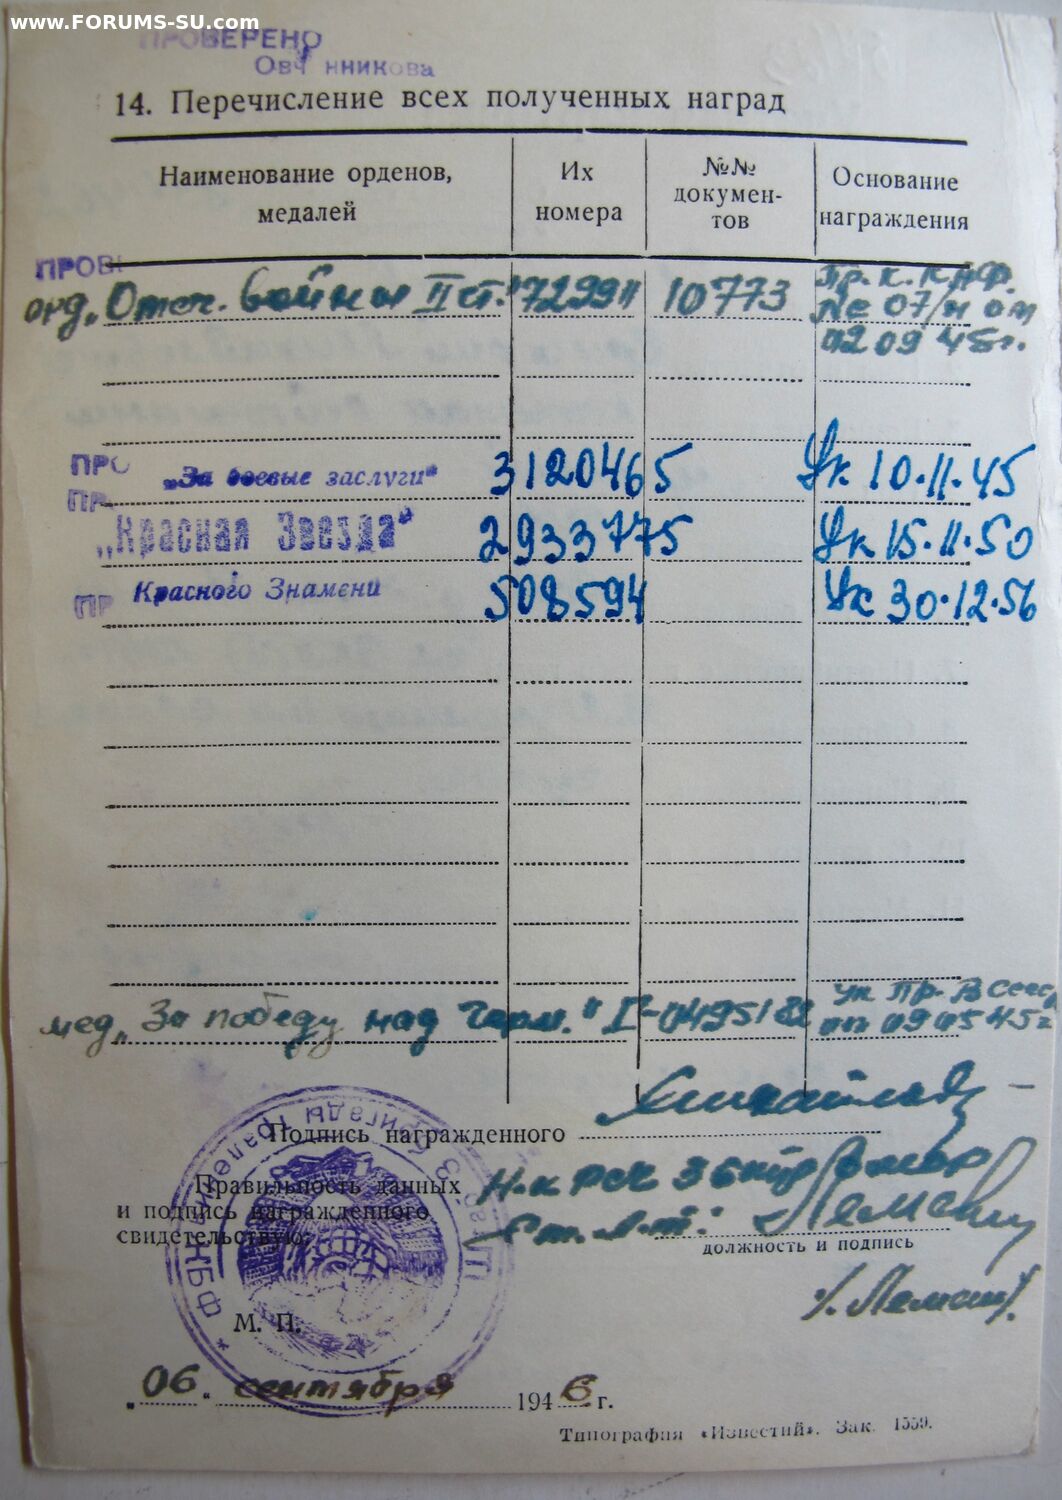 www.FORUMS-SU.com
ПРОВЕРЕНО
14. Перечисление всех полученных наград
Наименование орденов, медалей
Их номера
№№ докумен-тов
Основание награждения
орд. „Отеч. войны II ст." 729911 10773 Пр. к. КАФ. № 07/н от 02 09 45г.
„За боевые заслуги" 3120465 Ук 10.11.45
„Красная Звезда" 2933775 Ук 15.11.50
Красного Знамени 508594 Ук 30.12.56
мед „За победу над Герм." 0495182 ук Пр. В от 09 05 45г
Подпись награжденного
Правильность данных
и подпись награжденного
свидетельствую:
Ст. л-т:
должность и подпись
М. П.
„06" сентября 1946 г.
Типография «Известий». Зак. 1559.